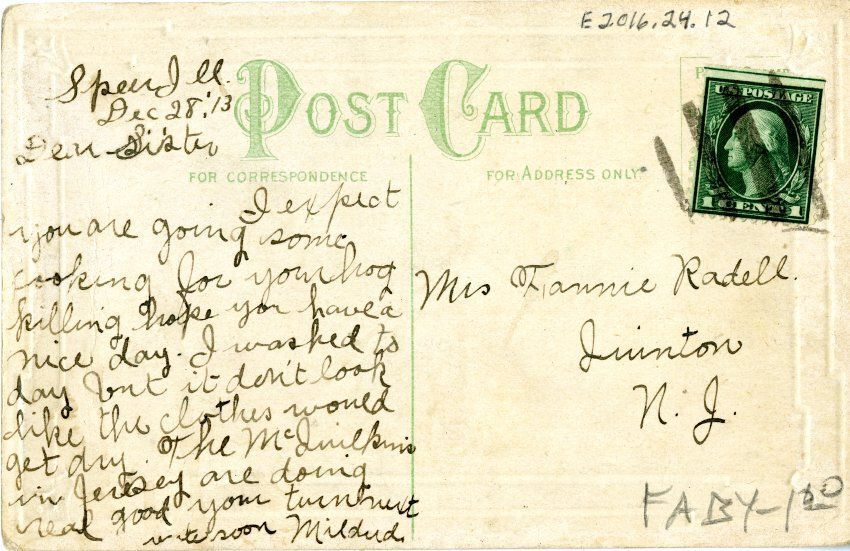 E2016.24.12
POST CARD
FOR CORRESPONDENCE
FOR ADDRESS ONLY
U.S. POSTAGE
1 CENT 1
Ill.
Dec 28, '13
Dear Sister
I expect
you are going some
cooking for your hog
killing hope you have a
nice day. I washed to
day but it don't look
like the clothes would
get dry. The McQuilkins
in Jersey are doing
real good your
write soon Mildred
Mrs Fannie Radell.
Quinton
N. J.
FABY-1.50